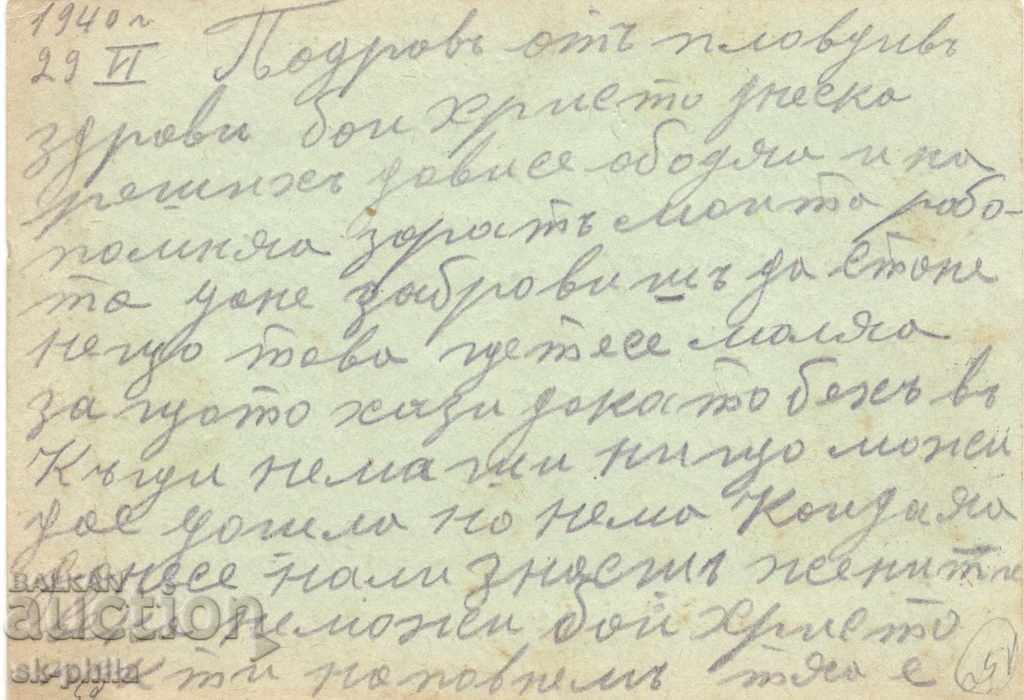 1940 г
29 VI Поздровъ отъ пловдивъ
здрави бои христо днеска
решихъ дависе ободяа и на
помняа зарать моита рабо-
та дане забровишъ да стане
нещо това щетесе моляа
защото хази докато бехъ въ
Къщи немаши нищо можи
дае дошло но нема Кой даяа
донесе нали знаешъ женитѣ
неможи бой христо
ти наповнемъ тяа е
51
BALKAN
auction
sk-philla